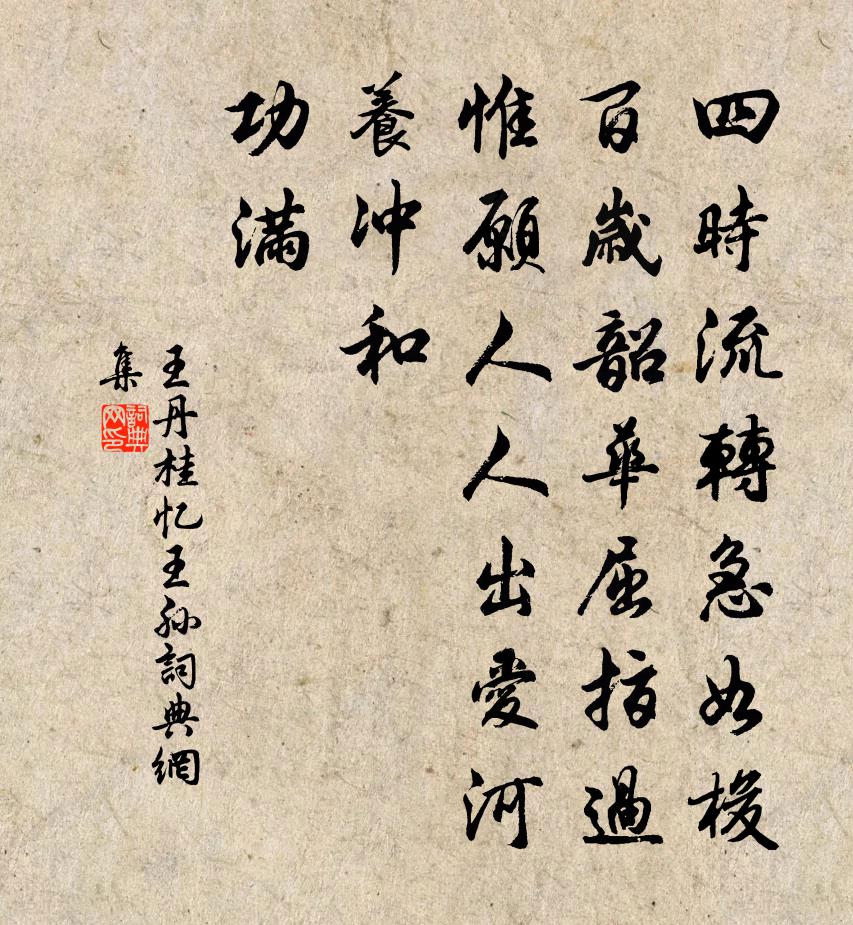 四時流轉急如梭
百歲韶華屈指過
惟願人人出愛河
養沖和
功滿
王丹桂忆王孙詞典網
集
詞典
网印